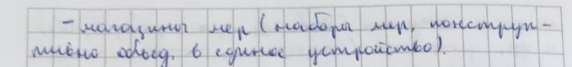 - магазины мер (наборы мер, конструк-
тивно объед. в единое устройство).